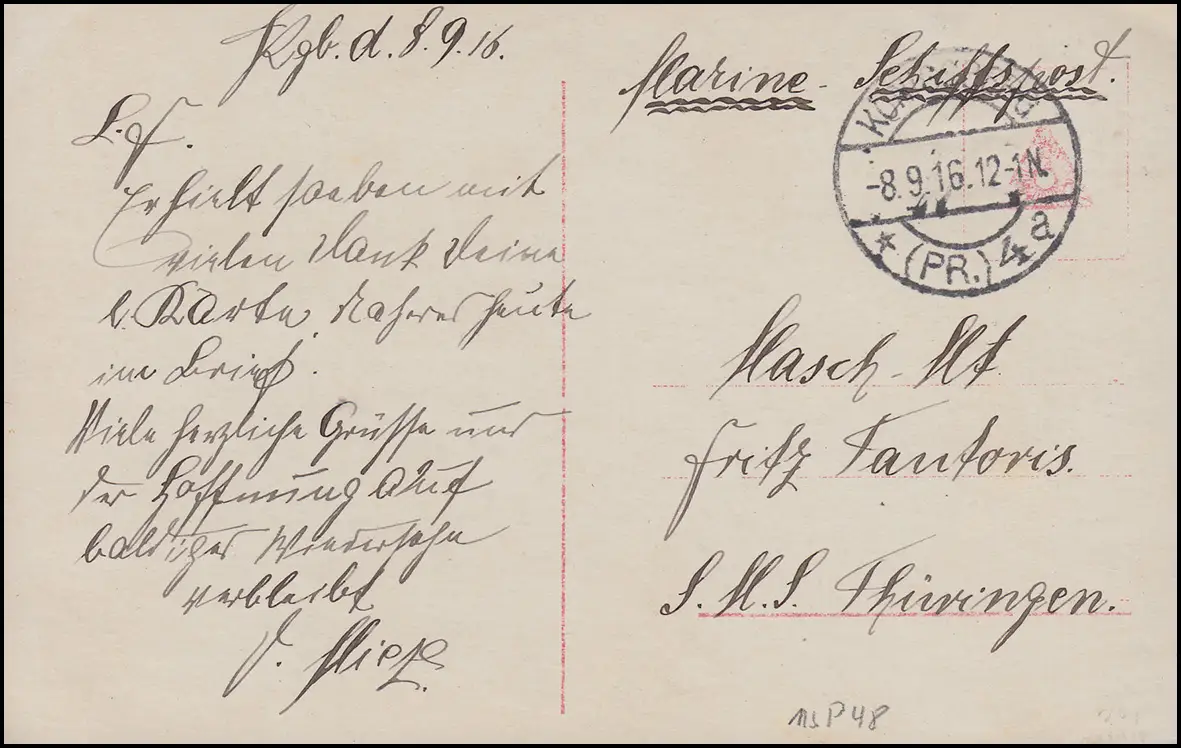 Kgb. d. 8.9.16.
L. F.
Erhielt soeben mit
vielen Dank Deine
l. Karte. Näheres heute
im Brief.
Viele herzliche Grüsse und
der Hoffnung auf
baldiges Wiedersehn
verbleibt
D. Mieze.
Marine-Schiffspost.
-8.9.16.12-1N.
* (PR.) 4a
Masch. Mt
Fritz Tantoris.
S.M.S. Thüringen.
MSP 48